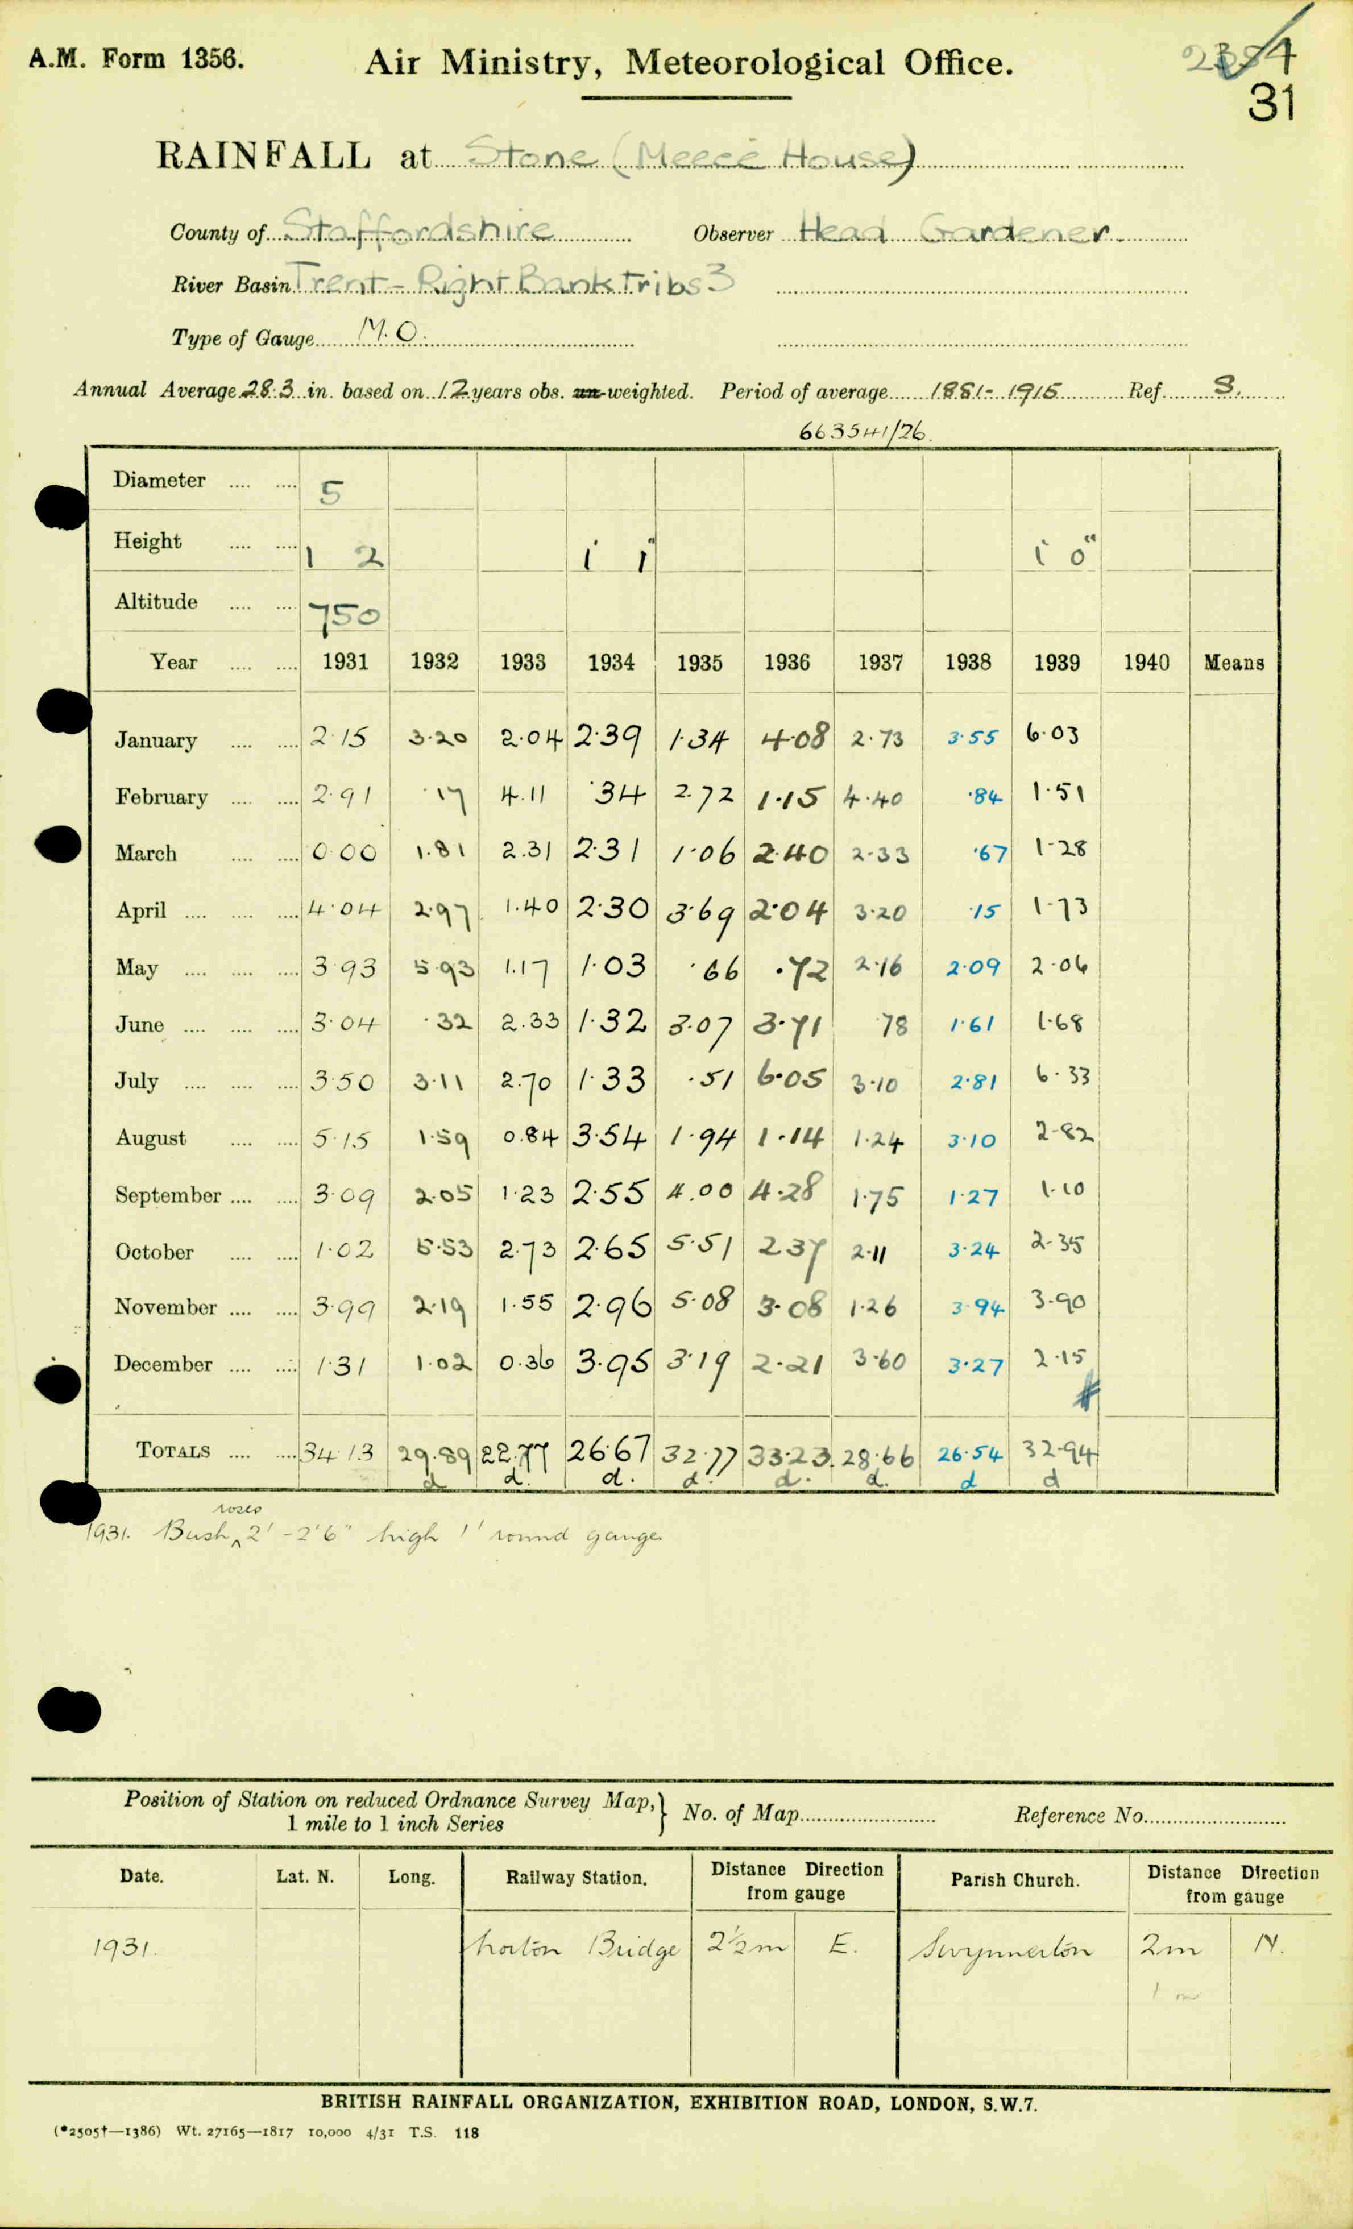 A.M. Form 1356.
Air Ministry, Meteorological Office.
31
RAINFALL at Stone (Meece House)
County of Staffordshire Observer Head Gardener.
River Basin Trent - Right Bank Tribs 3
Type of Gauge M.O.
Annual Average 28.3 in. based on 12 years obs. un-weighted. Period of average 1881-1915 Ref. S.
663541/26.
Diameter 5
Height 1 2 1 1" 1 0"
Altitude 750
Year 1931 1932 1933 1934 1935 1936 1937 1938 1939 1940 Means
January 2.15 3.20 2.04 2.39 1.34 4.08 2.73 3.55 6.03
February 2.91 .17 4.11 .34 2.72 1.15 4.40 .84 1.51
March 0.00 1.81 2.31 2.31 1.06 2.40 2.33 .67 1.28
April 4.04 2.97 1.40 2.30 3.69 2.04 3.20 .15 1.73
May 3.93 5.93 1.17 1.03 .66 .72 2.16 2.09 2.06
June 3.04 .32 2.33 1.32 3.07 3.71 78 1.61 1.68
July 3.50 3.11 2.70 1.33 .51 6.05 3.10 2.81 6.33
August 5.15 1.59 0.84 3.54 1.94 1.14 1.24 3.10 2.82
September 3.09 2.05 1.23 2.55 4.00 4.28 1.75 1.27 1.10
October 1.02 5.53 2.73 2.65 5.51 2.37 2.11 3.24 2.35
November 3.99 2.19 1.55 2.96 5.08 3.08 1.26 3.94 3.90
December 1.31 1.02 0.36 3.95 3.19 2.21 3.60 3.27 2.15
TOTALS 34.13 29.89 22.77 26.67 32.77 33.23 28.66 26.54 32.94
d d. d. d. d. d. d d
roses
1931. Bush ^ 2' - 2'6" high 1' round gauge
Position of Station on reduced Ordnance Survey Map, } No. of Map Reference No.
1 mile to 1 inch Series
Date. Lat. N. Long. Railway Station. Distance Direction from gauge Parish Church. Distance Direction from gauge
1931. Norton Bridge 2½m E. Swynnerton 2m N.
1 m
BRITISH RAINFALL ORGANIZATION, EXHIBITION ROAD, LONDON, S.W.7.
(*2505†—1386) Wt. 27165—1817 10,000 4/31 T.S. 118